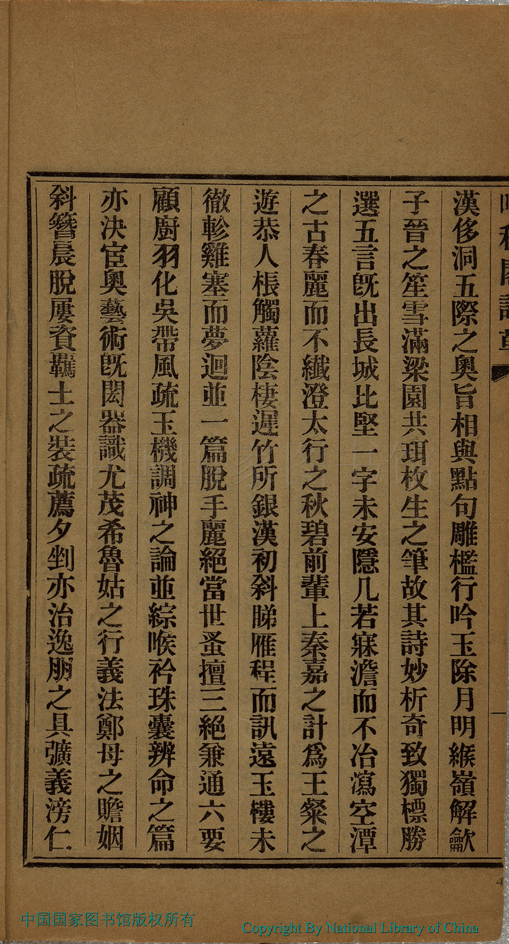 漢侈洞五際之奧旨相與點句雕檻行吟玉除月明緱嶺解龡
子晉之笙雪滿梁園共珥枚生之筆故其詩妙析奇致獨標勝
選五言旣出長城比堅一字未安隱几若寐澹而不冶瀉空潭
之古春麗而不纖澄太行之秋碧前輩上秦嘉之計爲王粲之
遊恭人棖觸蘿陰棲遲竹所銀漢初斜睇雁程而訊遠玉樓未
徹軫雞塞而夢迴並一篇脫手麗絕當世蚤擅三絕兼通六要
顧廚羽化吳帶風疏玉機調神之論並綜喉衿珠囊辨命之篇
亦決宧奧藝術旣閎器識尤茂希魯姑之行義法鄭母之贍姻
斜簪晨脫屢資羈士之裝疏薦夕剉亦治逸朋之具彍義滂仁
中国国家图书馆版权所有
Copyright By National Library of China